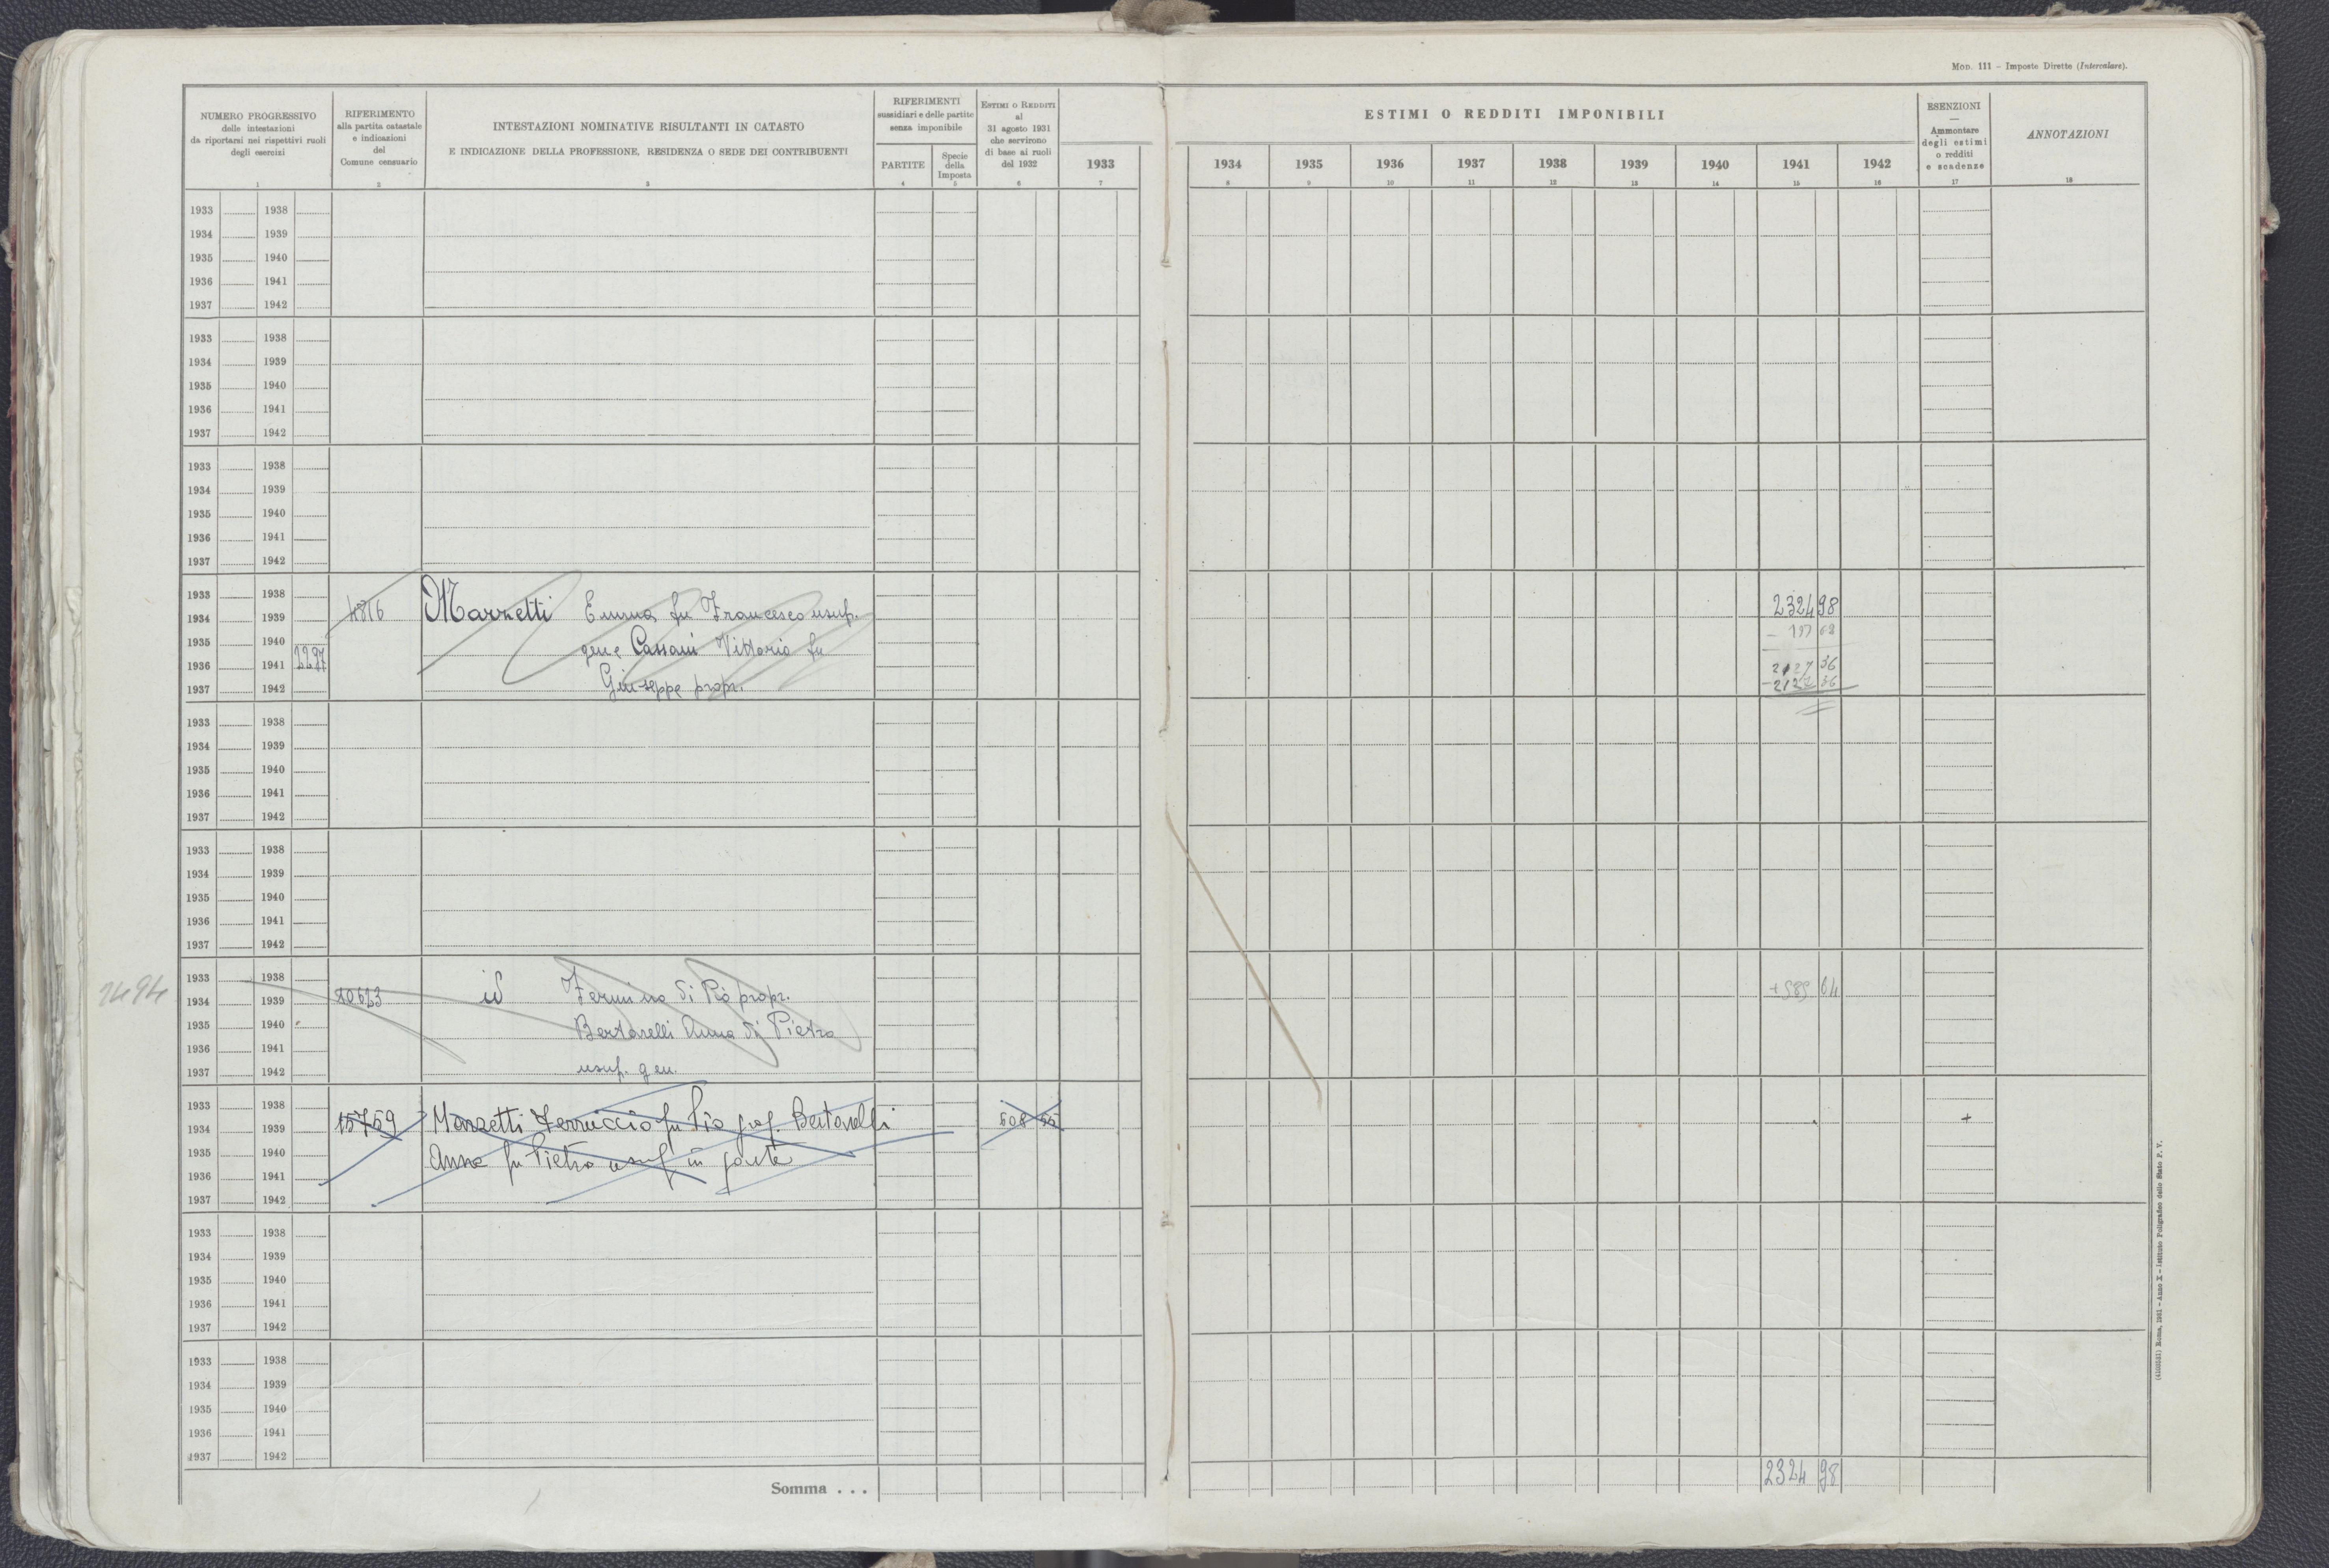 Mon. 111 - Imposte Dirette (Intercalare).
NUMERO PROGRESSIVO
delle intestazioni
da riportarsi nei rispettivi ruoli
degli esercizi
1
RIFERIMENTO
alla partita catastale
e indicazioni
del
Comune censuario
2
INTESTAZIONI NOMINATIVE RISULTANTI IN CATASTO
E INDICAZIONE DELLA PROFESSIONE, RESIDENZA O SEDE DEI CONTRIBUENTI
3
RIFERIMENTI
sussidiari e delle partite
senza imponibile
PARTITE
4
Specie
della
Imposta
5
ESTIMI O REDDITI
al
31 agosto 1931
che servirono
di base ai ruoli
del 1932
6
1933
7
ESTIMI O REDDITI IMPONIBILI
1934 1935 1936 1937 1938 1939 1940 1941 1942
8 9 10 11 12 13 14 15 16
ESENZIONI
—
Ammontare
degli estimi
o redditi
e scadenze
17
ANNOTAZIONI
18
1933 1938
1934 1939
1935 1940
1936 1941
1937 1942
1933 1938
1934 1939
1935 1940
1936 1941
1937 1942
1933 1938
1934 1939
1935 1940
1936 1941
1937 1942
1933 1938
1934 1939 4816 Marzetti Emma fu Francesco usuf. 2324 98
1935 1940 gen e Cassani Vittorio fu
1936 1941 2297 2127 36
1937 1942 Giuseppe propr. -2127 36
1933 1938
1934 1939
1935 1940
1936 1941
1937 1942
1933 1938
1934 1939
1935 1940
1936 1941
1937 1942
1933 1938
1494 1934 1939 id di Pio propr.
1935 1940 Bertarelli Anna di Pietro
1936 1941
1937 1942 usuf. gen.
1933 1938
1934 1939 15759 Marzetti Ferruccio fu Pio prop. Bertarelli 508 55 +
1935 1940 Anna fu Pietro usuf in parte
1936 1941
1937 1942
1933 1938
1934 1939
1935 1940
1936 1941
1937 1942
1933 1938
1934 1939
1935 1940
1936 1941
1937 1942
Somma . . . 2324 98
(4100351) Roma, 1931 - Anno X - Istituto Poligrafico dello Stato P. V.